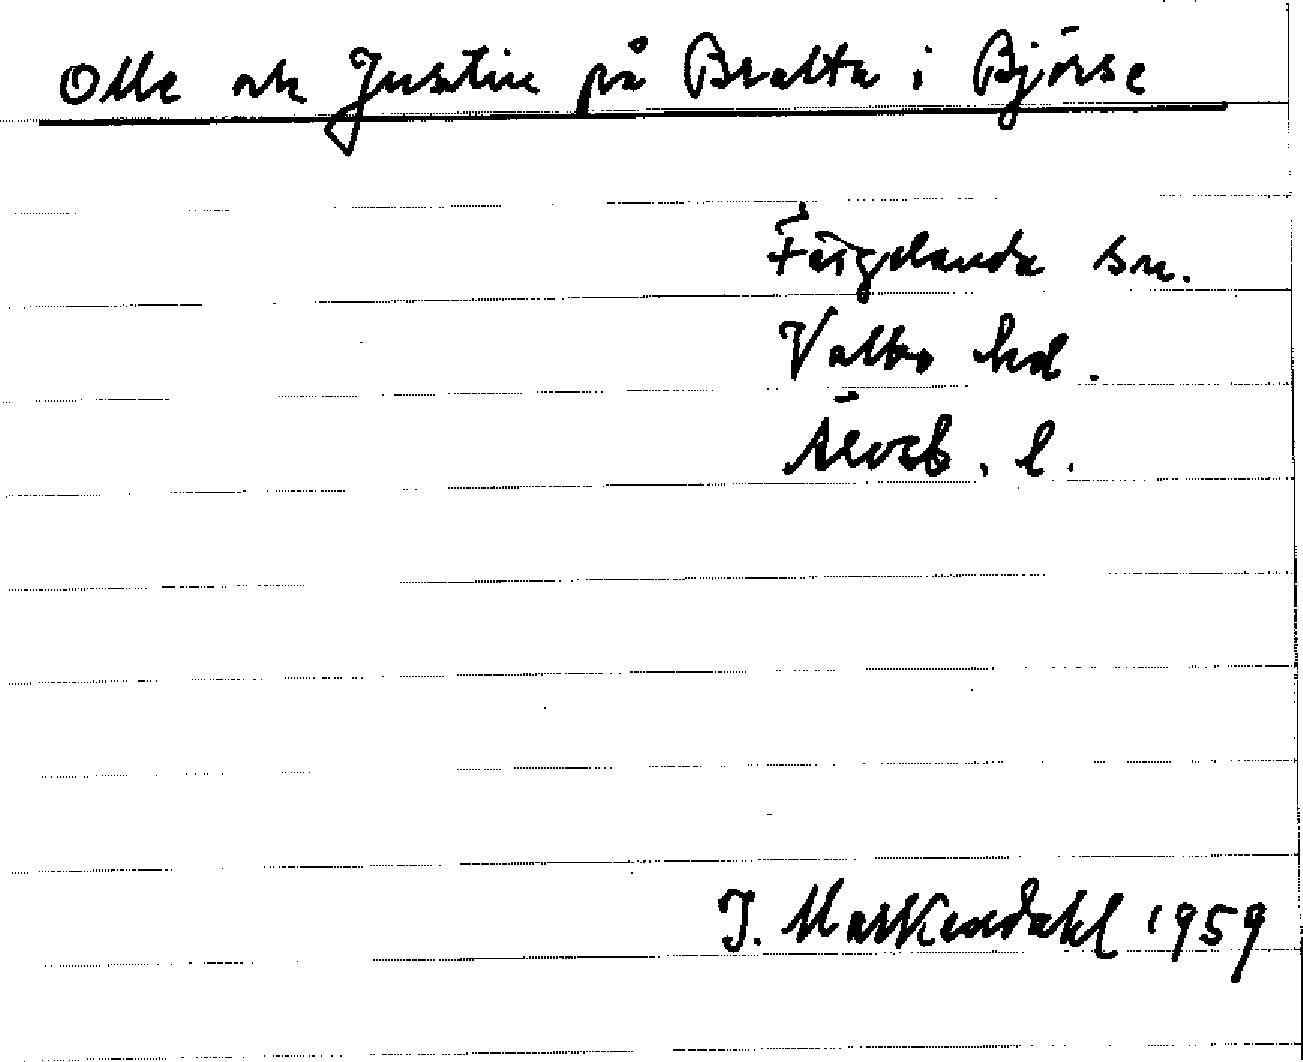 Olle och Justin på Bratta i Björse
Färgelanda sn.
Valbo hd.
Älvsb. l.
J. Markendahl 1959